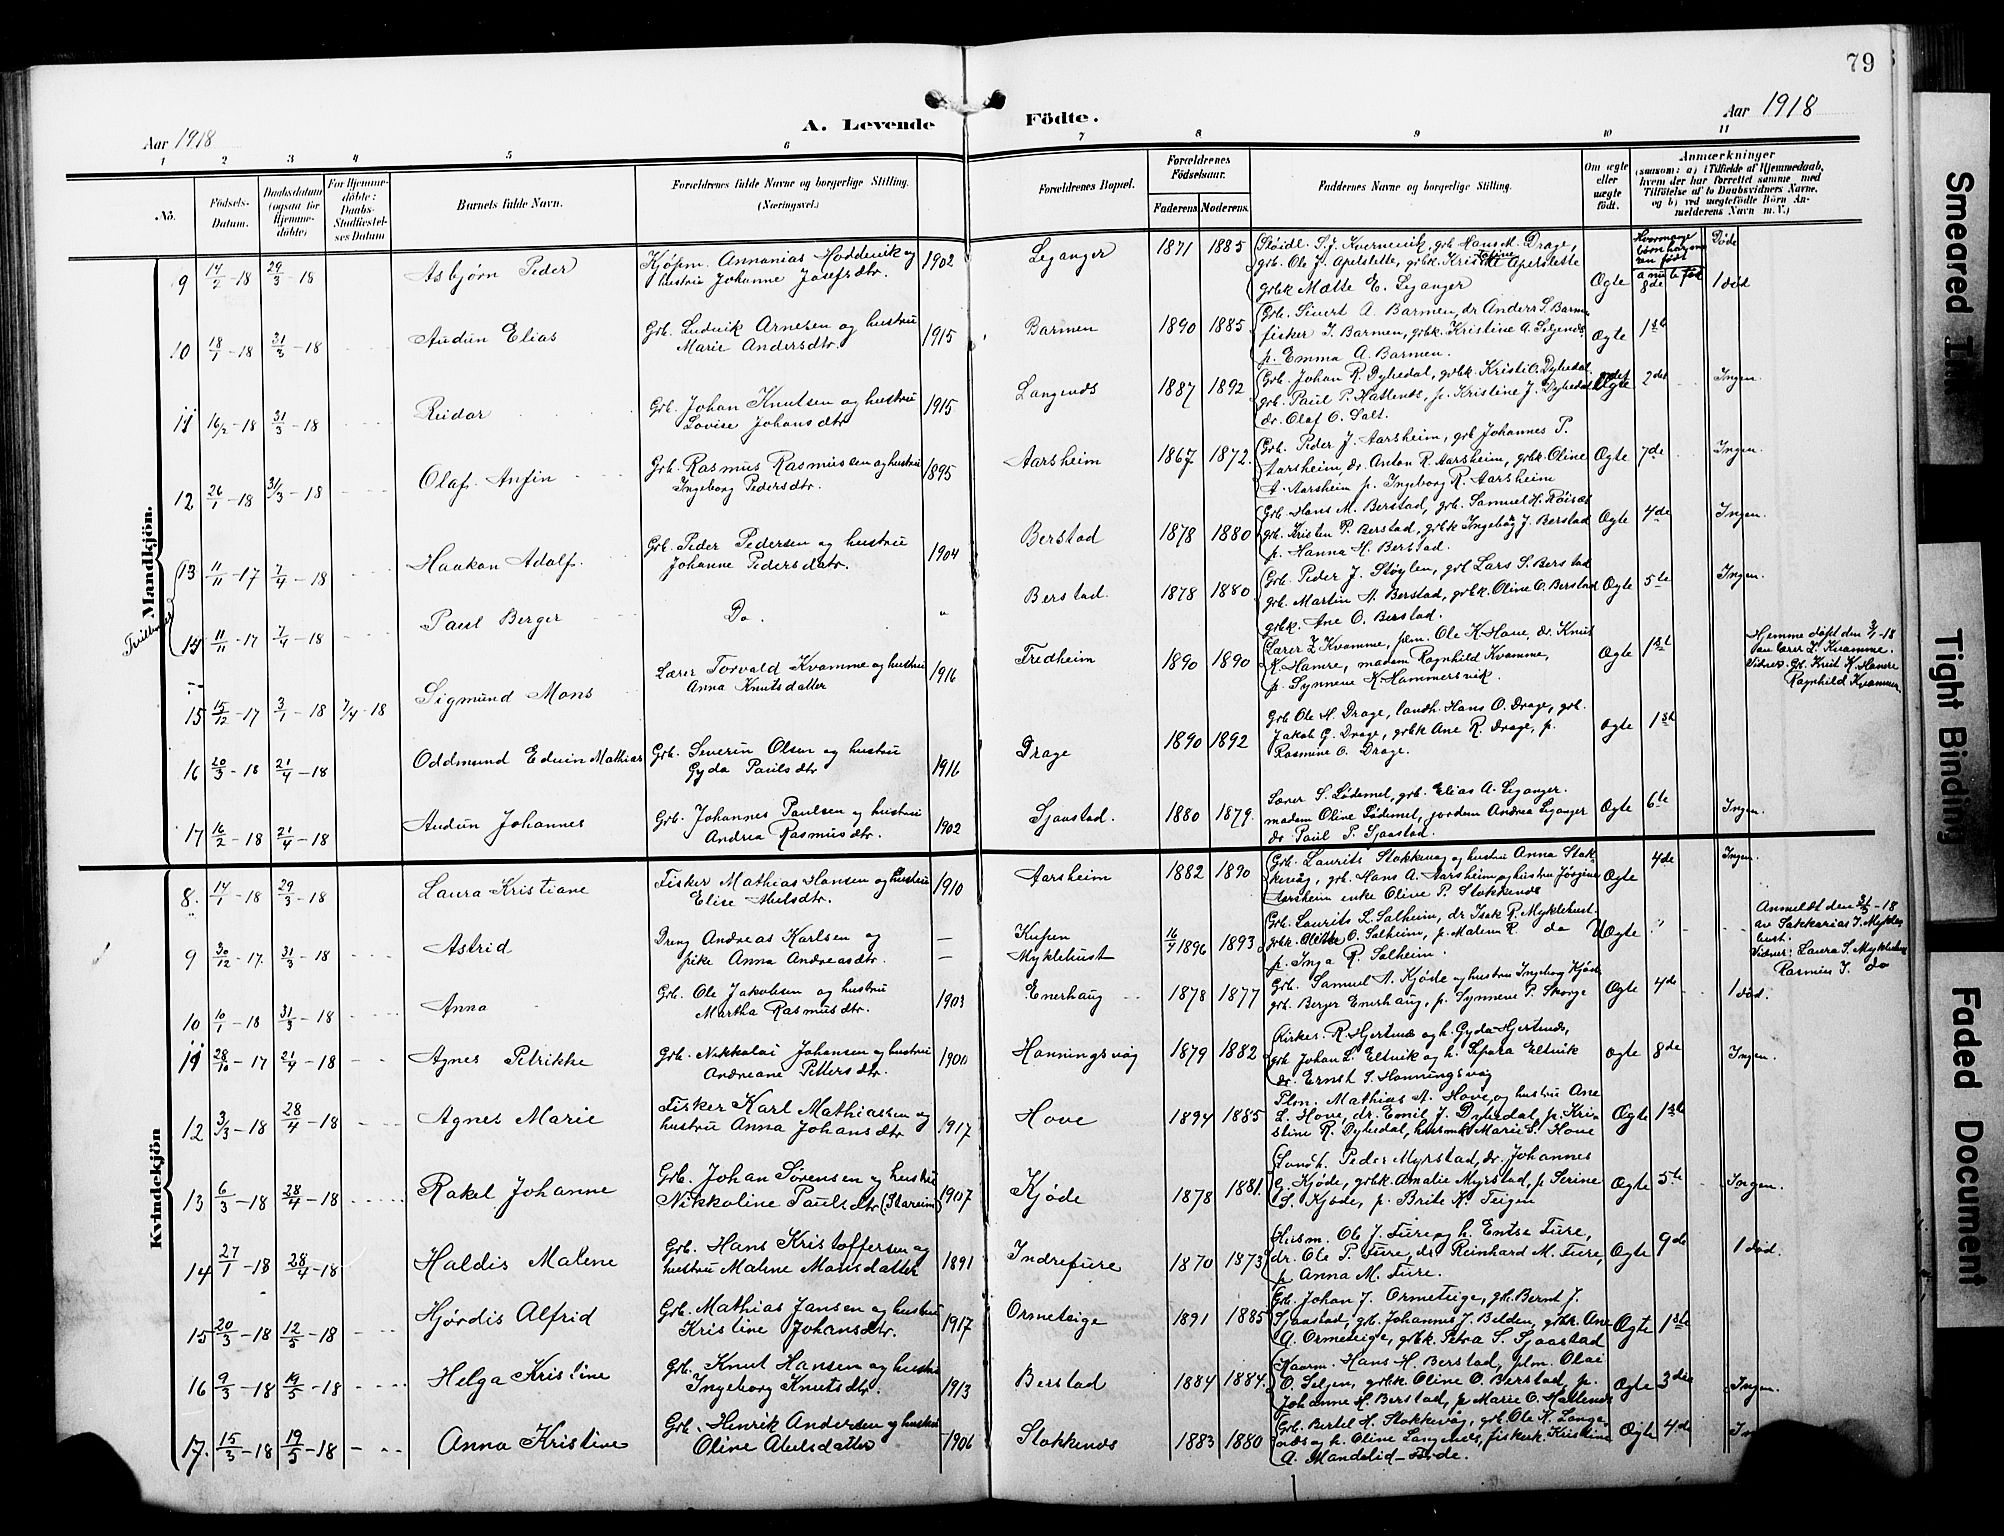 79
Aar 1918
A. Levende Födte.
Aar 1918
1 2 3 4 5 6 7 8 9 10 11
No.
Födsels-Datum.
Daabsdatum (ogsaa for Hjemmedöbte)
For Hjemmedöbte: Daabs-Stadfæstelses Datum
Barnets fulde Navn.
Forældrenes fulde Navne og borgerlige Stilling.
(Næringsvei.)
Forældrenes Bopæl.
Forældrenes Födselsaar.
Faderens. Moderens.
Faddernes Navne og borgerlige Stilling.
Om ægte eller uægte født.
Anmærkninger
(saasom: a) i Tilfælde af Hjemmedaab, hvem der har forrettet samme med Tilföielse af to Daabsvidners Navne, og b) ved uægtefödte Börn Anmelderens Navn m. V.)
Mandkjön.
9 14/2-18 29/3-18 Asbjørn Peder Kjøpm. Annanias Hoddevik og 1902 Leganger 1871 1885
hustru Johanne Josefsdtr.
grb. Ole J. Apelsette, grbk. Kristine Apelsette
grbk Mætte E. Leganger Ægte 8de 1 død
Døde
10 18/1-18 31/3-18 Audun Elias Grb. Ludvik Arnesen og hustru 1915 Barmen 1890 1885 Grb. Sivert A. Barmen, dr Anders S. Barmen
Marie Andersdtr. fisker J. Barmen, grbk. Kristine A. Seljenes Ægte 1ste
p. Emma A. Barmen.
11 16/2-18 31/3-18 Reidar Grb. Johan Knutsen og hustru 1915 Langenes 1887 1892 Grb. Johan R. Dyhedal, grbk Kristi O. Dyhedal Ægte 2det Ingen
Lovise Johansdtr grb. Paul P. Hatlenes, p. Kristine J. Dyhedal
dr. Olaf O. Dalt.
12 26/1-18 31/3-18 Olaf Anfin Grb. Rasmus Rasmussen og hustru 1895 Aarsheim 1867 1872. Grb. Peder J. Aarsheim, grb Johannes P.
Ingeborg Pedersdtr. Aarsheim, dr. Anton R. Aarsheim, grbk. Oline Ægte 7de Ingen
A. Aarsheim p. Ingeborg R. Aarsheim
Trillinger
13 11/11-17 7/4-18 Haakon Adolf. Grb. Peder Pedersen og hustru 1904 Berstad 1878 1880 Grb. Hans M. Berstad, grb. Samuel H. Røiset
Johanne Pedersdatr. grb. Kristen P. Berstad, grbk Ingeborg J. Berstad Ægte 4de Ingen
p. Hanna H. Berstad.
14 11/11-17 7/4-18 Paul Berger Do. " Berstad. 1878 1880 Grb. Peder J. Støylen, grb Lars S. Berstad
grb. Martin A. Berstad, grbk. Oline O. Berstad Ægte 5te Ingen
grbk. Ane O. Berstad.
15 15/12-17 3/1-18 7/4-18 Sigmund Mons Lærer Torvald Kvamme og hustru 1916 Fredheim 1890 1890 Lærer Z Kvamme, plm. Ole K. Hove, dr. Knut
Anna Knutsdatter K. Hamre, madam Ragnhild Kvamme, Ægte 1ste
p. Synneve K. Hammersvik.
Hjemme døpt den 3/1-18
av lærer Z. Kvamme.
Vidner: Gb. Krist K. Hamre
Ragnhild Kvamme
16 20/3-18 21/4-18 Oddmund Eduin Mathias Grb. Severin Olsen og hustru 1916 Drage 1890 1892 Grb Ole H. Drage, landh. Hans O. Drage, grb.
Gyda Paulsdtr Jakob G. Drage, grbk Ane R. Drage, p. Ægte 1ste
Rasmine O. Drage.
17 16/2-18 21/4-18 Audun Johannes Grb. Johannes Paulsen og hustru 1902 Sjaastad. 1880 1879. Lærer S. Lødemel, grb. Elias A. Leganger.
Andrea Rasmusdtr. madam Oline Lødemel, jordem Andrea Leganger Ægte 6te Ingen
dr. Paul P. Sjaastad.
Kvindekjön
8. 14/1-18 29/3-18 Laura Kristiane Fisker Mathias Hansen og hustru 1910 Aarsheim 1882 1890 Grb. Laurits Stokkevag og hustru Anna Stok-
Elise Nilsdtr. kevåg, grb. Hans A. Aarsheim og hustru Jørgine Ægte 4de Ingen.
Aarsheim enke Oline P. Stokkenes
9 30/12-17. 31/3-18 Astrid Dreng Andreas Karlsen og — Kupen 16/9 1896 1893 Grb. Laurits L. Salheim, dr Isak R. Myklebust.
pike Anna Andreasdtr. — Myklebust grbk. Olitte O. Salheim, p. Malena R do Uægte "
p. Inga R. Salheim.
Anmeldt den 31/3-18
av Sakkarias I. Mykle-
bust.
Vidner: Laura S. Myklebust
Rasmus I. do
10 10/1-18 31/3-18 Anna Grb. Ole Jakobsen og hustru 1903 Enerhaug 1878 1877 Grb. Samuel A. Kjøde og hustru Ingeborg Kjøde
Martha Rasmusdtr. grb. Berger Enerhaug, p. Synneve P. Skorge Ægte 4de 1 død.
11 28/10-17 21/4-18 Agnes Petrikke Grb. Nikkolai Johansen og hustru 1900 Honningsvåg 1879 1882 Kirkes. R. Hjertnes og h. Gyda Hjertnes,
Andreane Pettersdtr. grb Johan L. Eltvik og h. Sefara Eltvik Ægte 8de Ingen.
dr. Ernst S. Honningsvåg
12 3/3-18 28/4-18 Agnes Marie Fisker Karl Mathiassen og 1917 Hove 1894 1885 Plm. Mathias A. Hove, og hustru Ane
hustru Anna Johansdtr L. Hove, dr. Emil J. Dyhedal, p. Kri- Ægte 1ste
stine R. Dyhedal, Marie S. Hove
13 6/3-18 28/4-18 Rakel Johanne Grb. Johan Sørensen og hustru 1907 Kjøde 1878 1881. Landh. Peder Myrstad, dr. Johannes
Nikkoline Paulsdtr (Stareim) G. Kjøde, grbk. Amalie Myrstad, p. Serine Ægte 5te Ingen.
S. Kjøde, p. Brite K. Teigen
14 27/1-18 28/4-18 Haldis Malene Grb. Hans Kristoffersen og 1891 Indrefure 1870 1873 Husm. Ole J. Fure og h. Entse Fure,
hustru Malene Monsdatter dr. Ole P. Fure, dr. Reinhard M. Fure, Ægte 9de 1 død.
p. Anna M. Fure.
15 20/3-18 12/5-18 Hjørdis Alfrid Grb. Mathias Jansen og hustru 1917 Ormeteige 1891 1885 Grb. Johan J. Ormeteige, grb. Bernt J.
Kristine Johansdtr. Sjaastad, grb. Johannes J. Belden, grbk. Ane Ægte 1ste
A. Ormeteige, grbk. Petra S. Sjaastad
16 9/3-18 19/5-18 Helga Kristine Grb. Knut Hansen og hustru 1913 Berstad 1884 1884. Kaarm. Hans H. Berstad, plm. Olai
Ingeborg Knutsdtr. O. Seljen, grbk Oline O. Berstad, p. Ægte 3die Ingen.
Johanne H. Berstad, p. Marie O. Hatlenes
17. 15/3-18 19/5-18 Anna Kristine Grb. Henrik Andersen og hustru 1906 Stokkenes 1883 1880 Grb. Bertel H. Stokkevåg, grb. Ole K. Lange-
Oline Abelsdatter nes og h. Oline Langenes, fiskerk. Kristine Ægte 4de
A. Mandelid - Førde.
Smeared Ink
Tight Binding
Faded Document